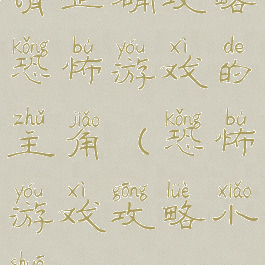 kǒng bù yóu xì de
恐怖游戏的
zhǔ jiǎo kǒng bù
主角(恐怖
yóu xì gōng lüè xiǎo
游戏攻略小
shuō